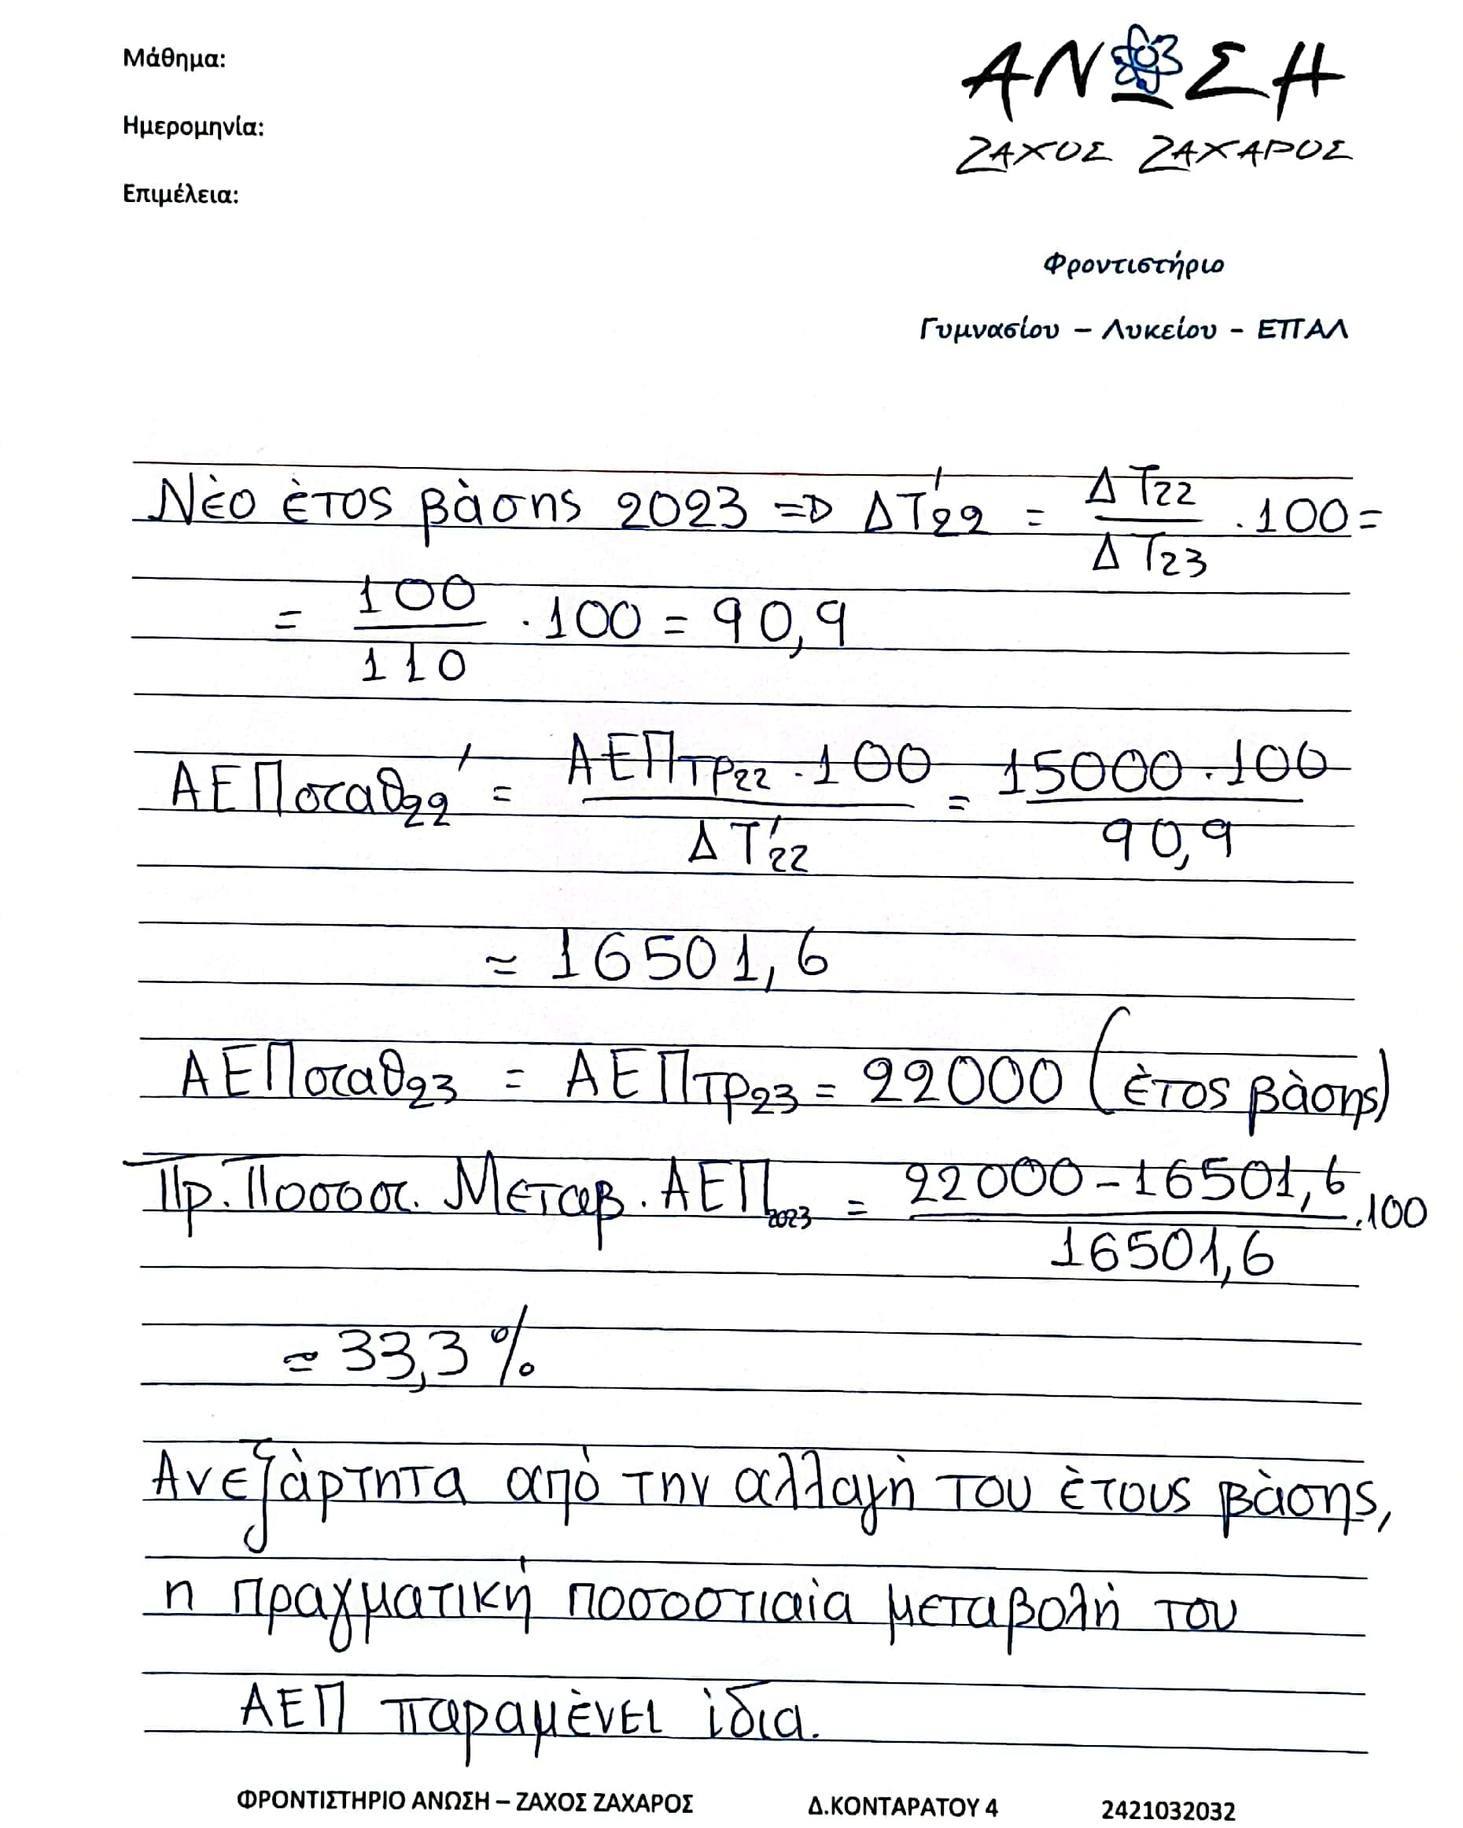 Μάθημα:
ΑΝΩΣΗ
Ημερομηνία:
ΖΑΧΟΣ ΖΑΧΑΡΟΣ
Επιμέλεια:
Φροντιστήριο
Γυμνασίου – Λυκείου - ΕΠΑΛ
Νέο έτος βάσης 2023 => ΔΤ'22 = ΔΤ22 / ΔΤ23 · 100 =
= 100 / 110 · 100 = 90,9
ΑΕΠσταθ22' = ΑΕΠτρ22 · 100 / ΔΤ'22 = 15000 · 100 / 90,9
≈ 16501,6
ΑΕΠσταθ23 = ΑΕΠτρ23 = 22000 (έτος βάσης)
Πρ. Ποσοσ. Μεταβ. ΑΕΠ2023 = 22000 - 16501,6 / 16501,6 · 100
≈ 33,3 %
Ανεξάρτητα από την αλλαγή του έτους βάσης,
η πραγματική ποσοστιαία μεταβολή του
ΑΕΠ παραμένει ίδια.
ΦΡΟΝΤΙΣΤΗΡΙΟ ΑΝΩΣΗ – ΖΑΧΟΣ ΖΑΧΑΡΟΣ Δ.ΚΟΝΤΑΡΑΤΟΥ 4 2421032032